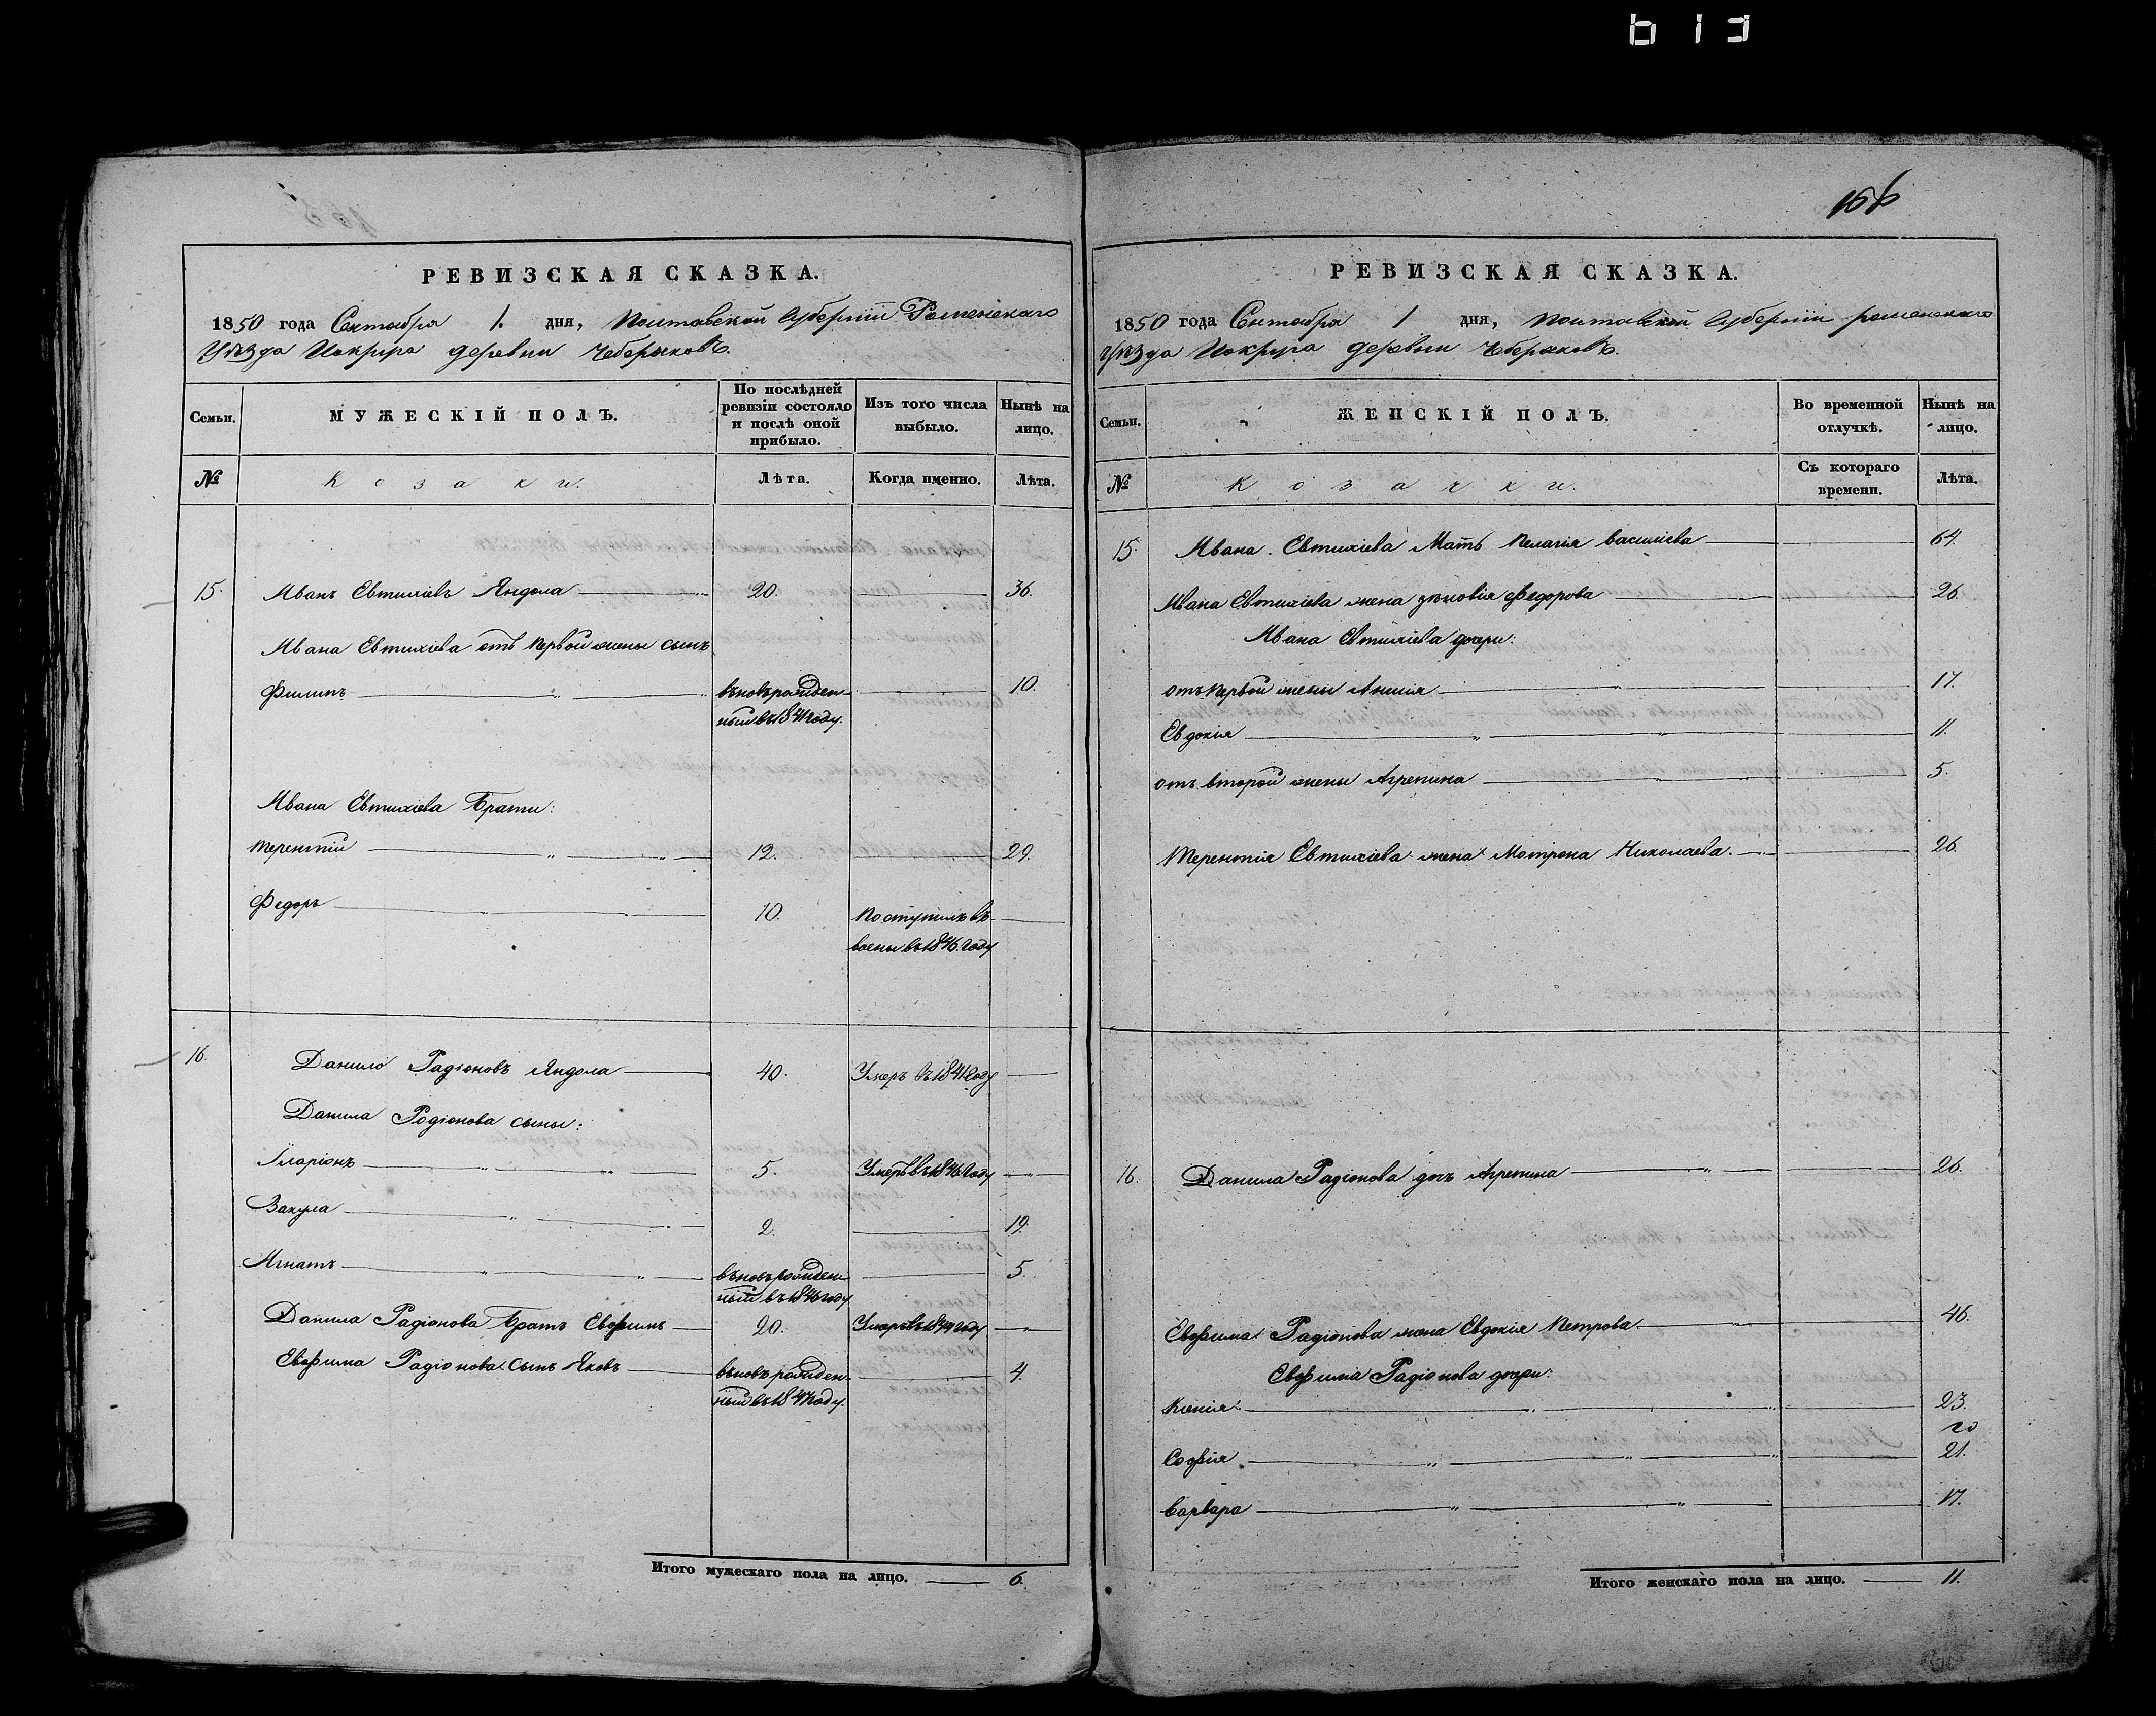 613
РЕВИЗСКАЯ СКАЗКА.
1850 года Сентября 1. дня, Полтавской Губерніи Роменскаго
Уѣзда деревни Чеберяковъ.
Семьи.
МУЖЕСКІЙ ПОЛЪ.
По послѣдней ревизіи состояло и послѣ оной прибыло.
Изъ того числа выбыло.
Нынѣ на лицо.
№
Козаки.
Лѣта.
Когда именно.
Лѣта.
15. Иванъ Евтихіевъ Яндола 20. 36.
Ивана Евтихіева отъ первой жены сынъ
Филипъ вновьрожден- 10.
ный въ 1841 году.
Ивана Евтихіева Брати:
Терентій 12. 29.
Федоръ 10. Поступилъ въ
въ 1846. году
16. Данило Радіоновъ Яндола 40. Умеръ въ 1841 году
Данила Родіонова сыны:
Іларіонъ 5. Умеръ въ 1846 году
Вакула 2. 19.
Игнатъ вновьрожден- 5.
ный въ 1846 году
Данила Радіонова Братъ Евфимъ 20. Умеръ въ году
Евфима Радіонова сынъ Яковъ вновьрожден- 4.
ный въ 1847 году.
Итого мужескаго пола на лицо. 6.
РЕВИЗСКАЯ СКАЗКА.
1850 года Сентября 1 дня, Полтавской Губерніи роменскаго
Уѣзда деревни Чеберяковъ.
Семьи.
ЖЕНСКІЙ ПОЛЪ.
Во временной отлучкѣ.
Нынѣ на лицо.
№
Козачки.
Съ котораго времени.
Лѣта.
15. Ивана Евтихіева Мать Пелагія василіева 64.
Ивана Евтихіева жена зѣновія Федорова 26.
Ивана Евтихіева дочери:
отъ первой жены 17.
Евдокія 11.
отъ второй жены Агрепина 5.
Терентія Евтихіева жена Мотрона Николаева. 26.
16. Данила Радіонова дочь Агрепина 26.
Евфима Радіонова жена Евдокія Петрова 46.
Евфима Радіонова дочери:
Ксенія 23.
20
Софія 21.
Варвара 17.
Итого женскаго пола на лицо. 11.